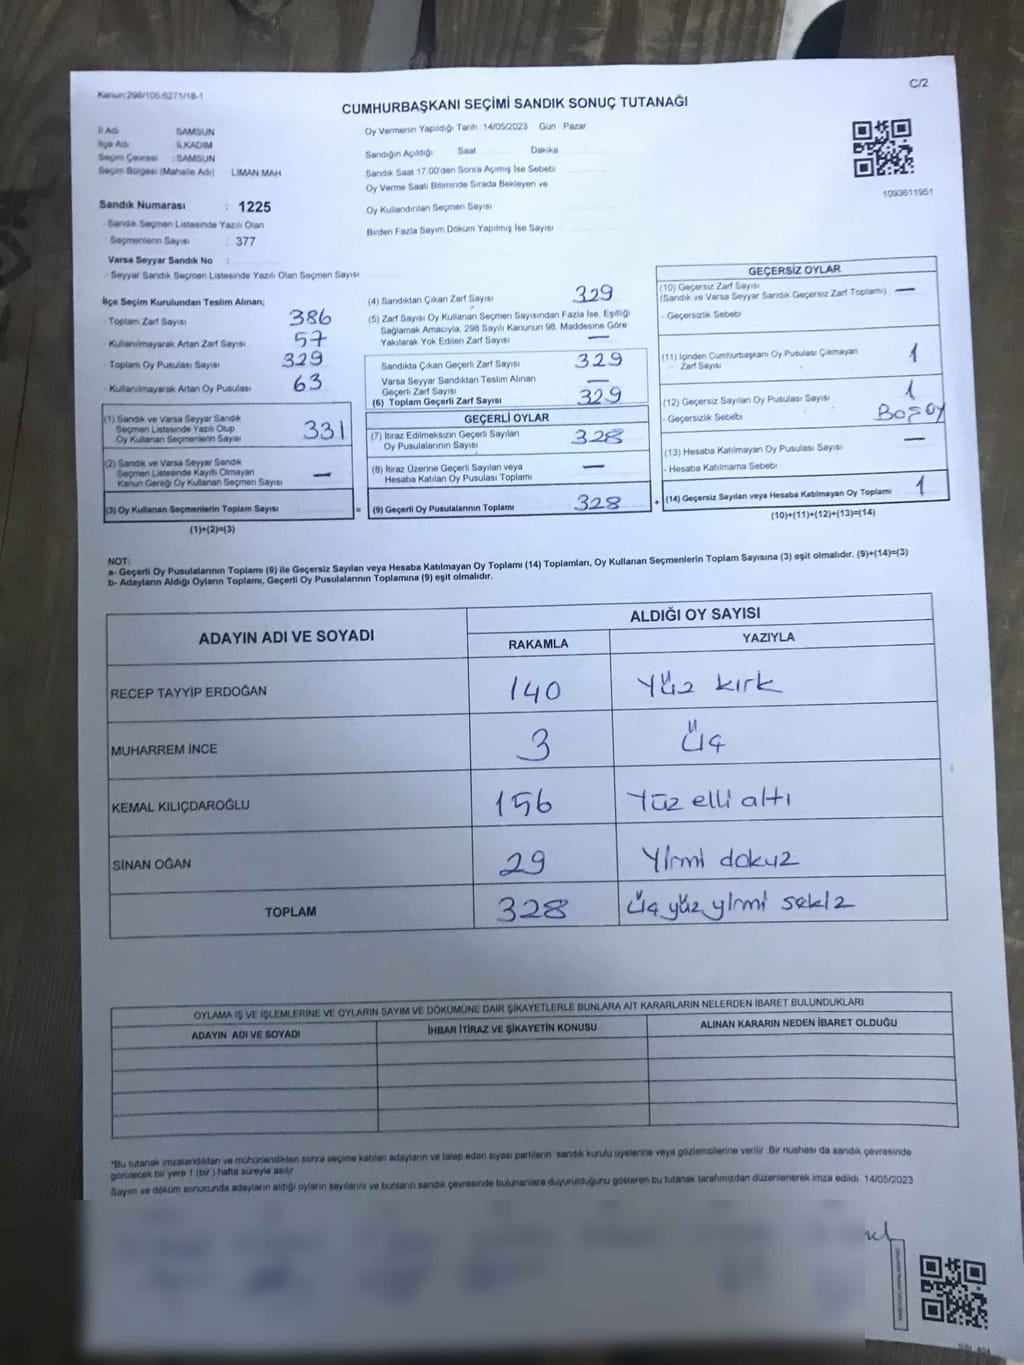 Kanun:298/105,6271/18-1
C/2
CUMHURBAŞKANI SEÇİMİ SANDIK SONUÇ TUTANAĞI
İl Adı SAMSUN
İlçe Adı İLKADIM
Seçim Çevresi : SAMSUN
Seçim Bölgesi (Mahalle Adı) LİMAN MAH
Oy Vermenin Yapıldığı Tarih 14/05/2023 Gün Pazar
Sandığın Açıldığı Saat Dakika
Sandık Saat 17.00'den Sonra Açılmış İse Sebebi
Oy Verme Saati Bitiminde Sırada Bekleyen ve
Oy Kullandırılan Seçmen Sayısı
Birden Fazla Sayım Döküm Yapılmış İse Sayısı
1093611951
Sandık Numarası : 1225
- Sandık Seçmen Listesinde Yazılı Olan
Seçmenlerin Sayısı : 377
Varsa Seyyar Sandık No :
- Seyyar Sandık Seçmen Listesinde Yazılı Olan Seçmen Sayısı
İlçe Seçim Kurulundan Teslim Alınan;
- Toplam Zarf Sayısı 386
- Kullanılmayarak Artan Zarf Sayısı 57
- Toplam Oy Pusulası Sayısı 329
- Kullanılmayarak Artan Oy Pusulası 63
(1) Sandık ve Varsa Seyyar Sandık
Seçmen Listesinde Yazılı Olup
Oy Kullanan Seçmenlerin Sayısı 331
(2) Sandık ve Varsa Seyyar Sandık
Seçmen Listesinde Kayıtlı Olmayan
Kanun Gereği Oy Kullanan Seçmen Sayısı —
(3) Oy Kullanan Seçmenlerin Toplam Sayısı =
(1)+(2)=(3)
(4) Sandıktan Çıkan Zarf Sayısı 329
(5) Zarf Sayısı Oy Kullanan Seçmen Sayısından Fazla İse, Eşitliği
Sağlamak Amacıyla, 298 Sayılı Kanunun 98. Maddesine Göre
Yakılarak Yok Edilen Zarf Sayısı —
Sandıkta Çıkan Geçerli Zarf Sayısı 329
Varsa Seyyar Sandıktan Teslim Alınan
Geçerli Zarf Sayısı —
(6) Toplam Geçerli Zarf Sayısı 329
GEÇERLİ OYLAR
(7) İtiraz Edilmeksizin Geçerli Sayılan
Oy Pusulalarının Sayısı 328
(8) İtiraz Üzerine Geçerli Sayılan veya
Hesaba Katılan Oy Pusulası Toplamı —
(9) Geçerli Oy Pusulalarının Toplamı 328 +
GEÇERSİZ OYLAR
(10) Geçersiz Zarf Sayısı
(Sandık ve Varsa Seyyar Sandık Geçersiz Zarf Toplamı) —
- Geçersizlik Sebebi
(11) İçinden Cumhurbaşkanı Oy Pusulası Çıkmayan
Zarf Sayısı 1
(12) Geçersiz Sayılan Oy Pusulası Sayısı 1
- Geçersizlik Sebebi BOŞ OY
(13) Hesaba Katılmayan Oy Pusulası Sayısı —
- Hesaba Katılmama Sebebi
(14) Geçersiz Sayılan veya Hesaba Katılmayan Oy Toplamı 1
(10)+(11)+(12)+(13)=(14)
NOT:
a- Geçerli Oy Pusulalarının Toplamı (9) ile Geçersiz Sayılan veya Hesaba Katılmayan Oy Toplamı (14) Toplamları, Oy Kullanan Seçmenlerin Toplam Sayısına (3) eşit olmalıdır. (9)+(14)=(3)
b- Adayların Aldığı Oyların Toplamı, Geçerli Oy Pusulalarının Toplamına (9) eşit olmalıdır.
ADAYIN ADI VE SOYADI ALDIĞI OY SAYISI
RAKAMLA YAZIYLA
RECEP TAYYİP ERDOĞAN 140 Yüz kırk
MUHARREM İNCE 3 Üç
KEMAL KILIÇDAROĞLU 156 Yüz elli altı
SİNAN OĞAN 29 Yirmi dokuz
TOPLAM 328 Üç yüz yirmi sekiz
OYLAMA İŞ VE İŞLEMLERİNE VE OYLARIN SAYIM VE DÖKÜMÜNE DAİR ŞİKAYETLERLE BUNLARA AİT KARARLARIN NELERDEN İBARET BULUNDUKLARI
ADAYIN ADI VE SOYADI İHBAR İTİRAZ VE ŞİKAYETİN KONUSU ALINAN KARARIN NEDEN İBARET OLDUĞU
*Bu tutanak imzalandıktan ve mühürlendikten sonra seçime katılan adayların ve talep eden siyasi partilerin sandık kurulu üyelerine veya gözlemcilerine verilir. Bir nushası da sandık çevresinde
görülecek bir yere 1 (bir) hafta süreyle asılır
Sayım ve döküm sonucunda adayların aldığı oyların sayılarını ve bunların sandık çevresinde bulunanlara duyurulduğunu gösteren bu tutanak tarafımızdan düzenlenerek imza edildi. 14/05/2023